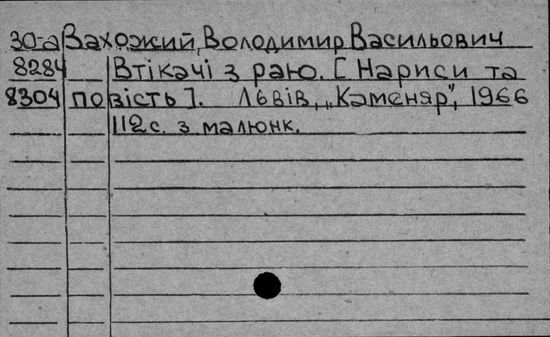 30-а Захожий, Володимир Васильович
8284 Втікачі з раю. [Нариси та
8304 повість]. Львів, „Каменяр", 1966
112 с. з малюнк.